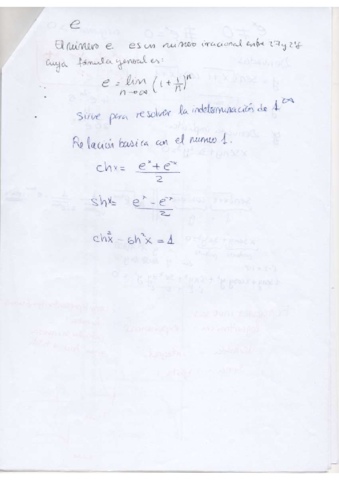 e
El número e es un número irracional entre 2'7 y 2'8
cuya fórmula general es:
e = lim n→∞ (1 + 1/n)^n
Sirve para resolver la indeterminación de 1^∞
Relación básica con el número 1.
chx = (e^x + e^-x)/2
shx = (e^x - e^-x)/2
ch²x - sh²x = 1